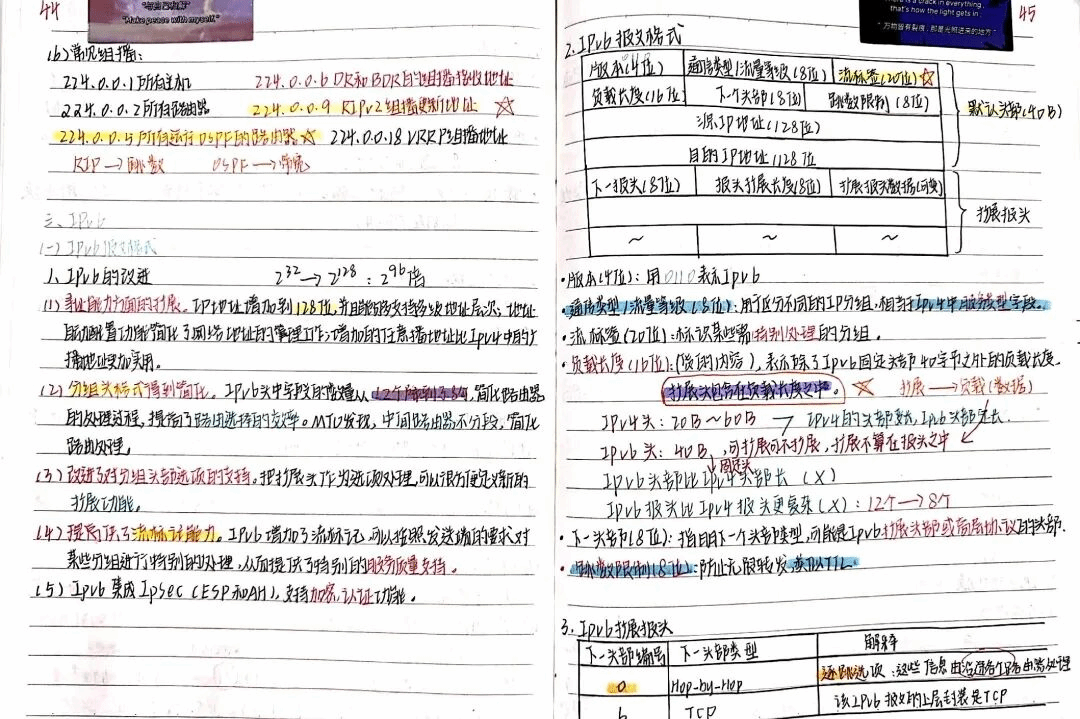 44
"与自己和解"
"Make peace with myself."
(6) 常见组播:
224.0.0.1 所有主机
224.0.0.6 DR和BDR的组播接收地址
224.0.0.2 所有路由器
224.0.0.9 RIPv2组播更新地址 ☆
224.0.0.5 所有运行OSPF的路由器☆
224.0.0.18 VRRP组播地址
RIP→跳数 OSPF→带宽
三、IPv6
(一) IPv6报文格式
1、IPv6的改进 2^32→2^128:2^96倍
(1) 寻址能力方面的扩展。IP地址增加到128位,并且能够支持多级地址层次;地址
自动配置功能简化了网络地址的管理工作;增加的任意播地址比IPv4中的广
播地址更加实用。
(2) 分组头格式得到简化。IPv6头中字段的数量从12个降到8个,简化路由器
的处理过程,提高了路由选择的效率。MTU发现,中间路由器不分段,简化
路由处理。
(3) 改进了对分组头部选项的支持。把扩展头作为选项处理,可以很方便定义新的
扩展功能。
(4) 提供了流标记能力。IPv6增加了流标记,可以按照发送端的要求对
某些分组进行特别的处理,从而提供了特别的服务质量支持。
(5) IPv6集成IpSec(ESP和AH),支持加密、认证功能。
45
There is a crack in everything,
that's how the light gets in.
"万物皆有裂痕,那是光照进来的地方"
2. IPv6报文格式
版本(4位) 通信类型/流量等级(8位) 流标签(20位)☆
负载长度(16位) 下一个头部(8位) 跳数限制(8位)
源IP地址(128位)
目的IP地址(128位)
默认头部(40B)
下一报头(8位) 报头扩展长度(8位) 扩展报头数据(可变)
扩展报头
~ ~ ~
·版本(4位):用0110表示IPv6
·通信类型/流量等级(8位):用于区分不同的IP分组,相当于IPv4中服务类型字段。
·流标签(20位):标识某些需特别处理的分组。
·负载长度(16位):(货的内容),表示除了IPv6固定头部40字节之外的负载长度。
扩展头包含在负载长度之中。 ☆ 扩展→负载(数据)
IPv4头:20B~60B → IPv4的头部变长,IPv6头部定长.
IPv6头:40B,可扩展可不扩展,扩展不算在报头之中
↓固定头
IPv6头部比IPv4头部长(X)
IPv6报头比IPv4报头更复杂(X):12个→8个
·下一头部(8位):指明下一个头部类型,可能是IPv6扩展头部或高层协议的头部.
·跳数限制(8位):防止无限转发,类似TTL.
3. IPv6扩展报头
下一头部编号 下一头部类型 解释
0 Hop-by-Hop 逐跳选项:这些信息由沿途各个路由器处理
6 TCP 该IPv6报文的上层封装是TCP